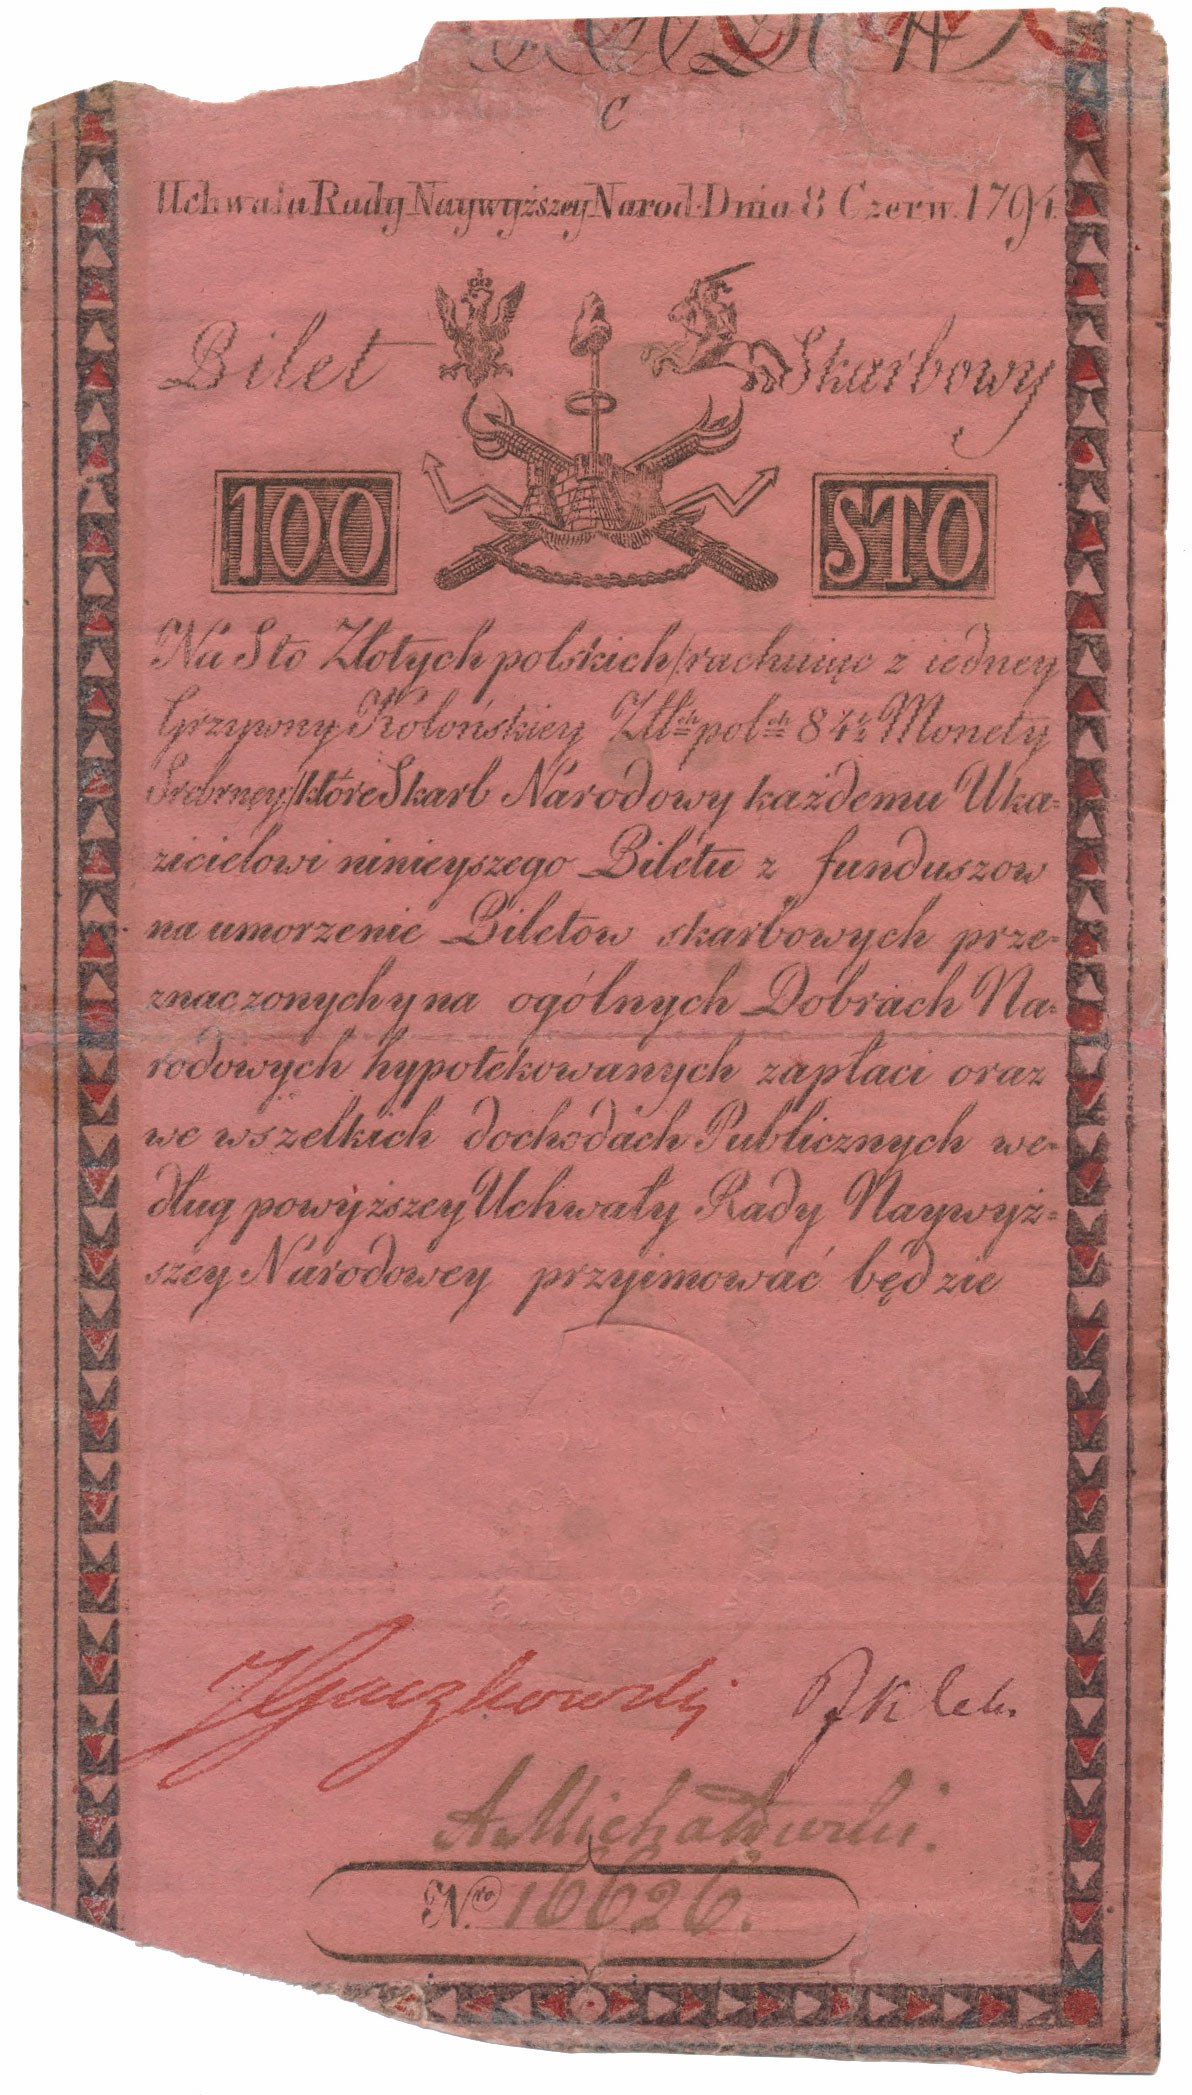 C
Uchwała Rady Naywyższey Narod. Dnia 8 Czerw. 1794.
Bilet Skarbowy
100 STO
Na Sto Złotych polskich /:rachuiąc z iedney
Grzywny Kolońskiey Złł.ch pol.ch 84½ Monety
Srebrney:/ które Skarb Narodowy każdemu Uka=
zicielowi ninieyszego Biletu z funduszow
na umorzenie Biletow skarbowych prze=
znaczonych y na ogólnych Dobrach Na=
rodowych hypotekowanych zapłaci oraz
we wszelkich dochodach Publicznych we=
dług powyższey Uchwały Rady Naywyż=
szey Narodowey przyimować będzie
A. Michałowski.
N.ro 16626.